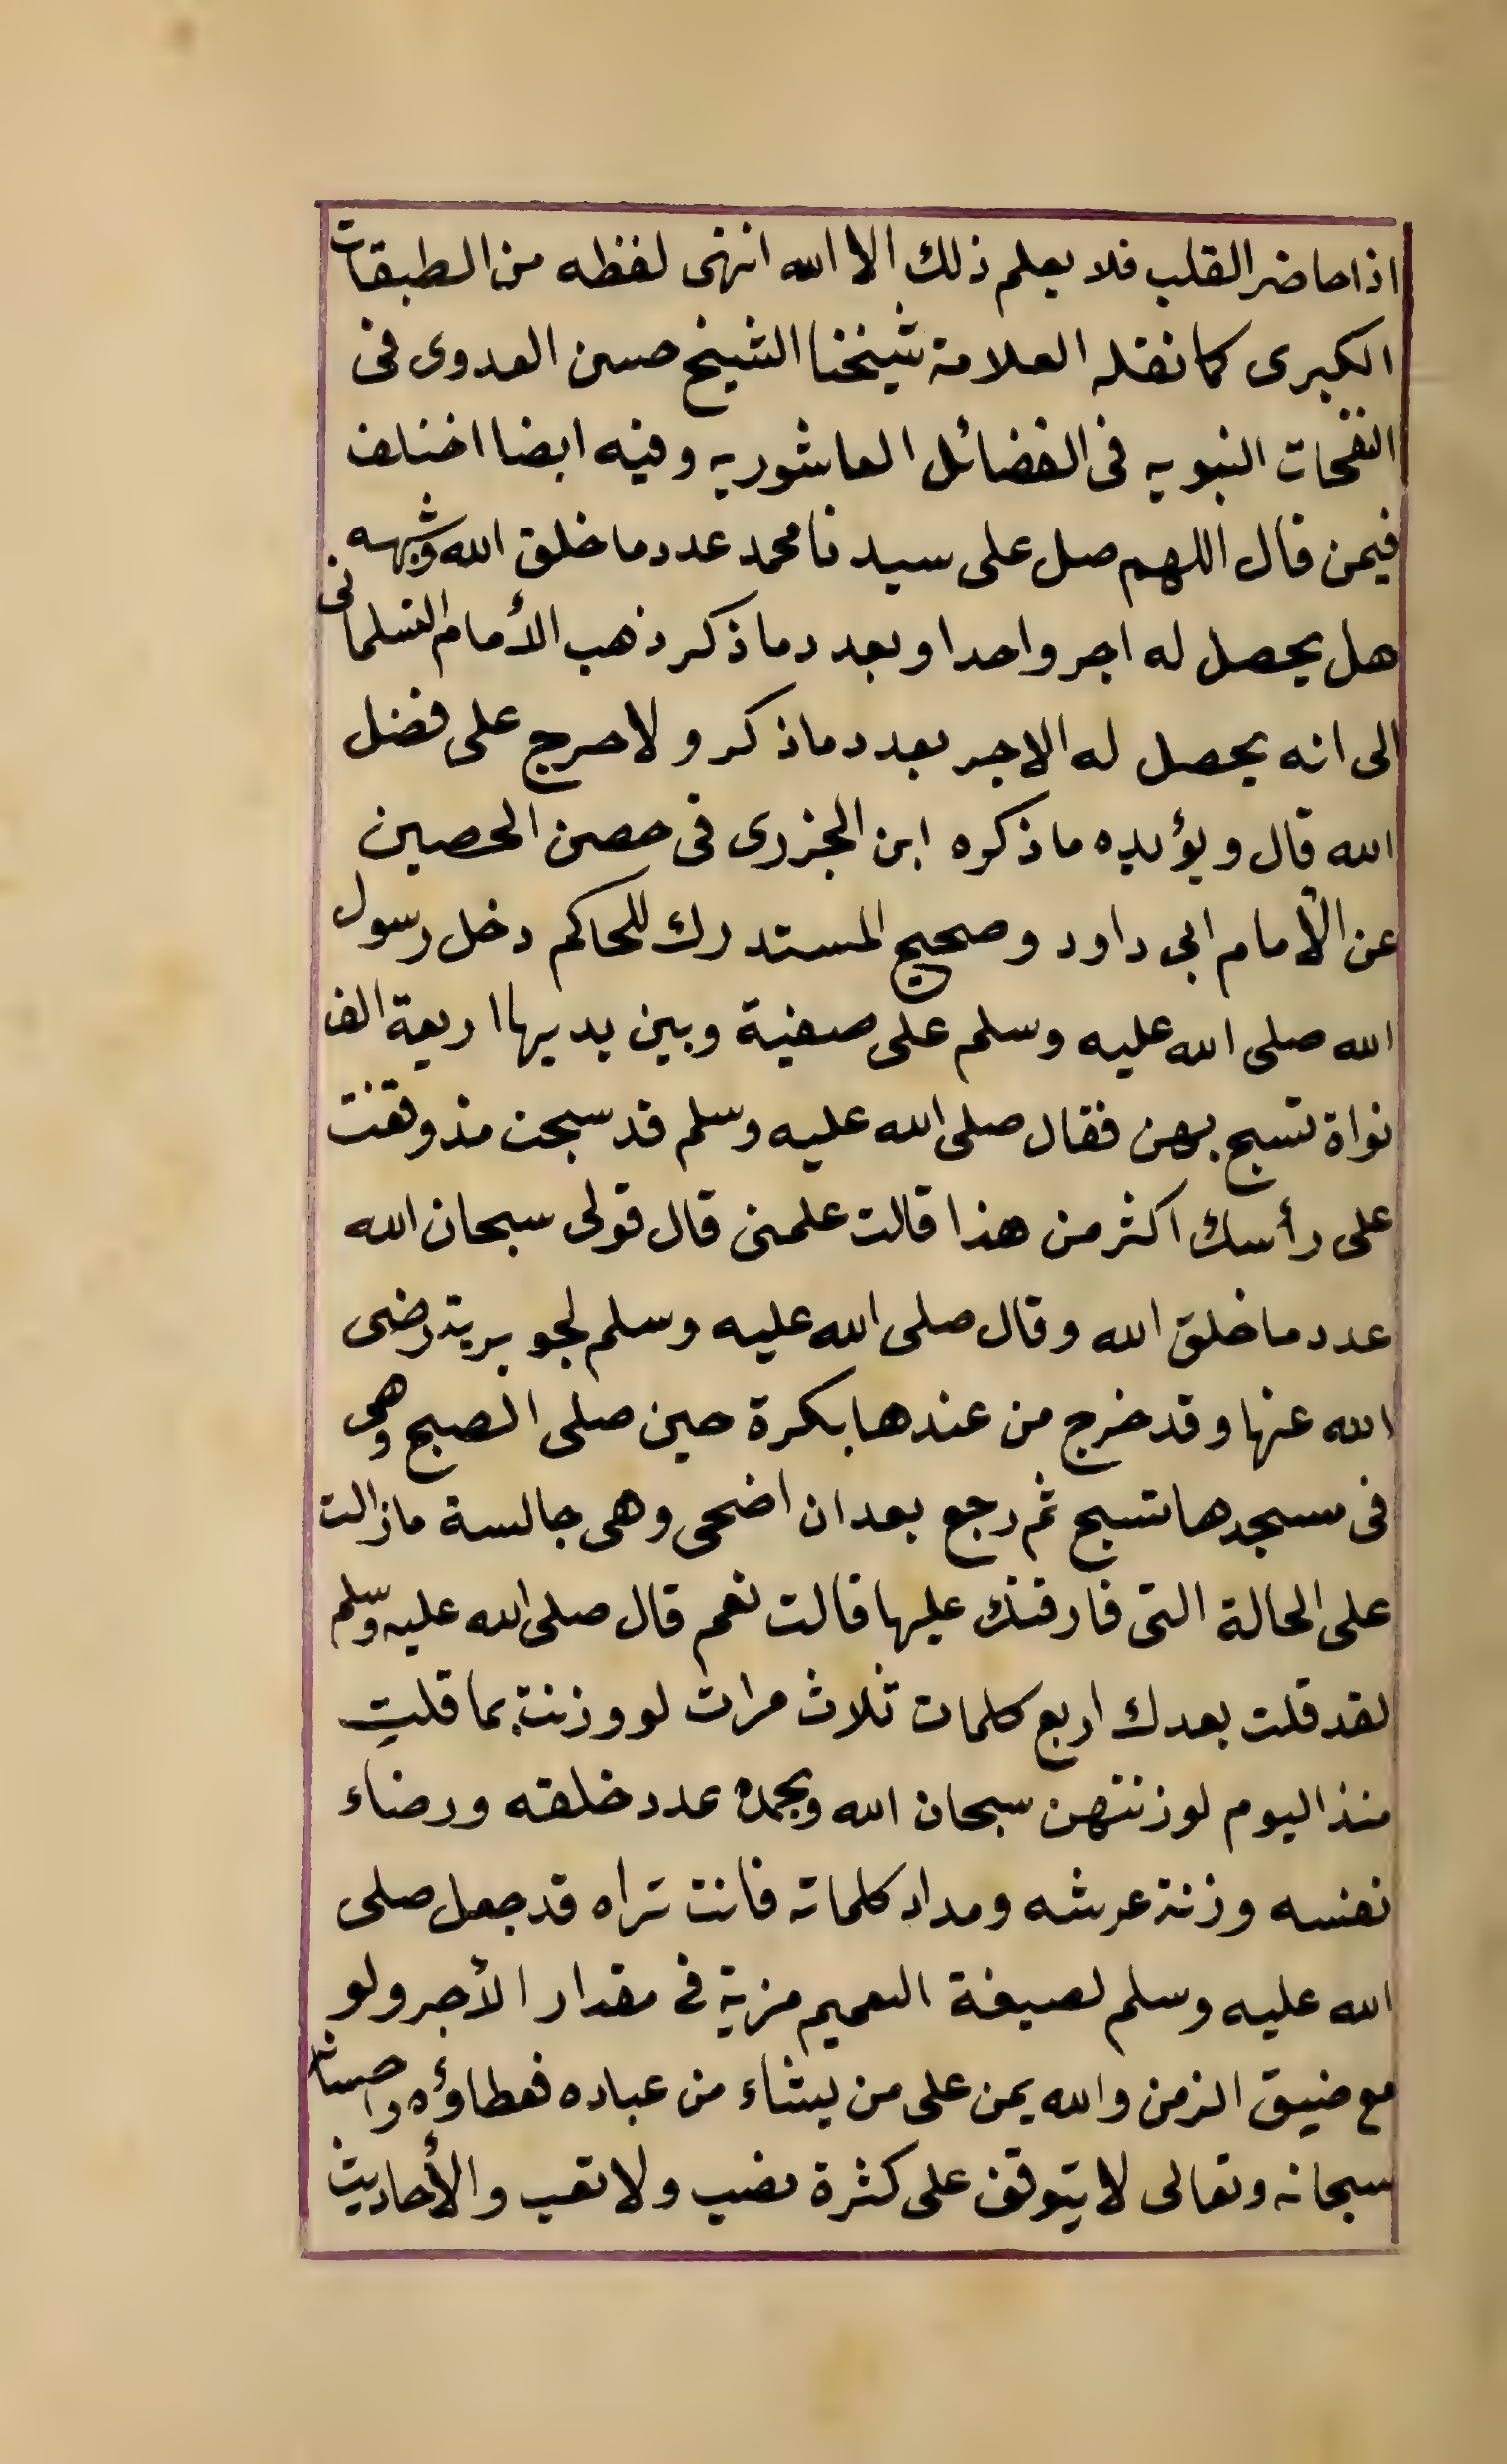 اذا حاضر القلب فلا يعلم ذلك الا الله انتهى لفظه من الطبقات
الكبرى كما نقله العلامة شيخنا الشيخ حسن العدوى فى
النفحات النبويه فى الفضائل العاشوريه وفيه ايضا اختلف
فيمن قال اللهم صل على سيدنا محمد عدد ما خلق الله وشبهه
هل يحصل له اجر واحد او بعدد ما ذكر ذهب الأمام التلمسانى
الى انه يحصل له الاجر بعدد ما ذكر ولا حرج على فضل
الله قال ويؤيده ما ذكره ابن الجزرى فى حصن الحصين
عن الأمام ابى داود وصحيح المستدرك للحاكم دخل رسول
الله صلى الله عليه وسلم على صفية وبين يديها اربعة الف
نواة تسبح بهن فقال صلى الله عليه وسلم قد سبحت مذ وقفت
على رأسك اكثر من هذا قالت علمنى قال قولى سبحان الله
عدد ما خلق الله وقال صلى الله عليه وسلم لجويرية رضى
الله عنها وقد خرج من عندها بكرة حين صلى الصبح وهى
فى مسجدها تسبح ثم رجع بعد ان اضحى وهى جالسة ما زالت
على الحالة التى فارقتك عليها قالت نعم قال صلى الله عليه وسلم
لقد قلت بعدك اربع كلمات ثلاث مرات لو وزنت بما قلت
منذ اليوم لوزنتهن سبحان الله وبحمده عدد خلقه ورضاء
نفسه وزنة عرشه ومداد كلماته فانت تراه قد جعل صلى
الله عليه وسلم لصيغة التعميم مزية فى مقدار الأجر ولو
مع ضيق الزمن والله يمن على من يشاء من عباده فعطاؤه واحسانه
سبحانه وتعالى لا يتوقف على كثرة نصب ولا تعب والأحاديث